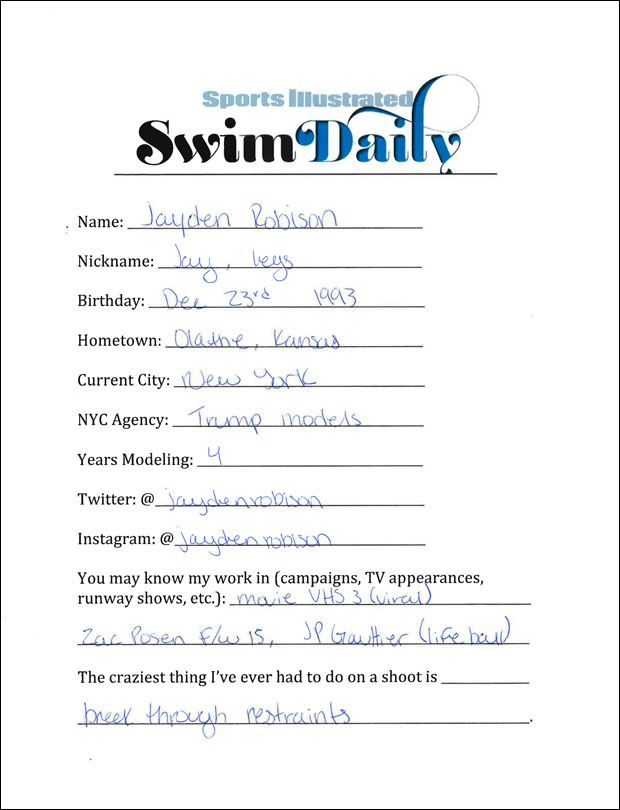 Sports Illustrated
Swim Daily
Name: Jayden Robison
Nickname: Jay, Legs
Birthday: Dec 23rd 1993
Hometown: Olathe, Kansas
Current City: New York
NYC Agency: Trump models
Years Modeling: 4
Twitter: @ jaydenrobison
Instagram: @ jaydenrobison
You may know my work in (campaigns, TV appearances,
runway shows, etc.): movie VHS 3 (viral)
Zac Posen F/W 15, JP Gaultier (life ball)
The craziest thing I've ever had to do on a shoot is
break through restraints.